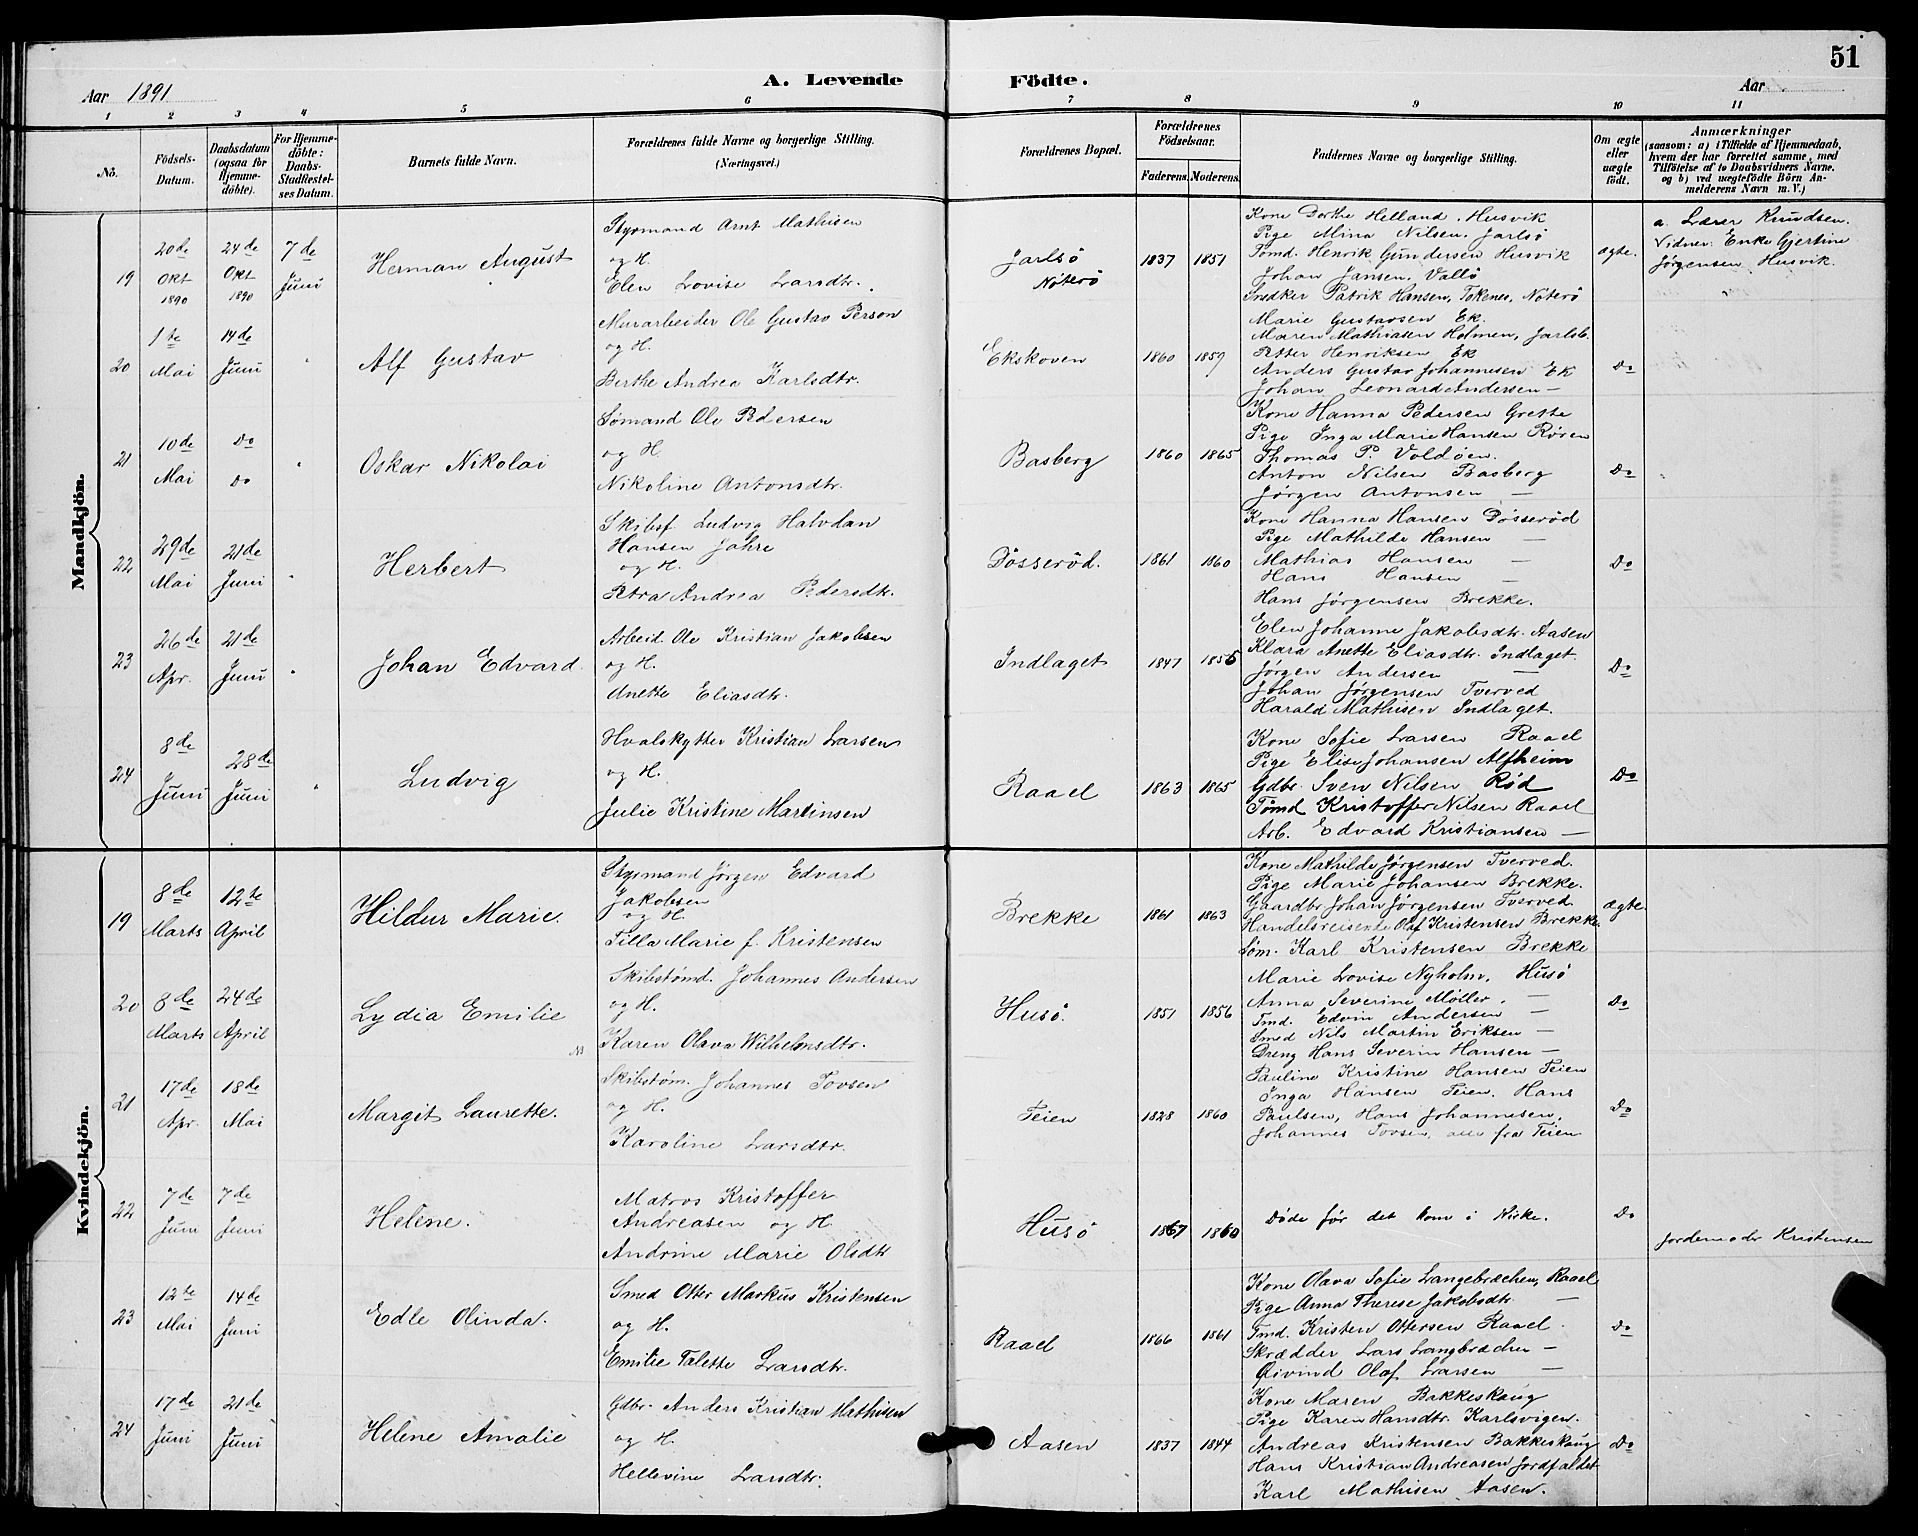 51
A. Levende Födte.
Aar 1891
Aar
1 2 3 4 5 6 7 8 9 10 11
Nö.
Födsels-Datum.
Daabsdatum (ogsaa for Hjemme-döbte).
For Hjemme-döbte: Daabs-Stadfæstel-ses Datum.
Barnets fulde Navn.
Forældrenes fulde Navne og borgerlige Stilling. (Næringsvei.)
Forældrenes Bopæl.
Forældrenes Födselsaar.
Faderens. Moderens.
Faddernes Navne og borgerlige Stilling.
Om ægte eller uægte födt.
Anmærkninger
(saasom: a) i Tilfælde af Hjemmedaab,
hvem der har forrettet samme, med
Tilföielse af to Daabsvidners Navne,
og b) ved uægtefödte Börn An-
melderens Navn m. V.)
Mandkjön.
19 20de Okt 1890 24de Okt 1890 7de Juni
Herman August
Styrmand Arnt Mathisen
og H.
Elen Lovise Larsdtr.
Jarlsö Nöterö
1837 1851
Kone Dorthe Helland, Husvik
Pige Mina Nilsen, Jarlsö
Tømd. Henrik Gundersen Husvik
Johan Jansen, Vallö
Snedker Patrik Hansen, Tokenes, Nöterö
ægte.
a. Lærer Knudsen.
Vidner: Enke Gjertine
Jørgensen Husvik.
20 1te Mai 14de Juni "
Alf Gustav
Murarbeider Ole Gustav Person
og H.
Berthe Andrea Karlsdtr.
Ekskoven
1860 1859
Marie Gustavsen Ek.
Maren Mathiasen Holmen, Jarlsb.
Petter Henriksen Ek
Anders Gustav Johannesen Ek
Johan Leonard Andersen —
Do
21 10de Mai Do Do "
Oskar Nikolai
Sømand Ole Pedersen
og H
Nikoline Antonsdtr.
Basberg
1860 1865
Kone Hanna Pedersen Grette
Pige Inga Marie Hansen Røren
Thomas P. Voldøen.
Anton Nilsen Basberg
Jørgen Antonsen —
Do
22 29de Mai 21de Juni "
Herbert
Skibsf. Ludvig Halvdan
Hansen Jahre
og H.
Petra Andrea Pedersdtr.
Døsserød.
1861 1860
Kone Hanna Hansen Døsserød
Pige Mathilde Hansen —
Mathias Hansen —
Hans Hansen —
Hans Jørgensen Brekke.
Do
23 26de Apr. 21de Juni "
Johan Edvard
Arbeid. Ole Kristian Jakobsen
og H.
Anette Eliasdtr.
Indlaget
1847 1855
Elen Johanne Jakobsdtr. Aasen
Klara Anette Eliasdtr. Indlaget.
Jørgen Andersen —
Johan Jørgensen Tverved
Harald Mathisen Indlaget.
Do
24 8de Juni 28de Juni "
Ludvig
Hvalskytter Kristian Larsen
og H.
Julie Kristine Martinsen
Raael
1863 1865
Kone Sofie Larsen Raael
Pige Elise Johansen Alfheim
Gdbr. Sven Nilsen Rød
Tømd Kristoffer Nilsen Raael
Arb. Edvard Kristiansen —
Do
Kvindekjön.
19 8de Marts 12te April
Hildur Marie.
Styrmand Jörgen Edvard
Jakobsen
og H.
Tilla Marie f. Kristensen
Brekke
1861 1863
Kone Mathilde Jørgensen Tverved.
Pige Marie Johansen Brekke.
Gaardbr Johan Jørgensen Tverved
Handelsreisende Olaf Kristensen Brekke.
Søm. Karl Kristensen Brekke
ægte.
20 8de Marts 24de April
Lydia Emilie
NB
Skibstømd. Johannes Andersen
og H.
Karen Olava Wilhelmsdtr.
Husö.
1851 1856
Marie Lovise Nyholm, Husö
Anna Severine Møller. —
Tmd. Edvin Andersen —
Smed Nils Martin Eriksen —
Dreng Hans Severin Hansen —
Do
21 17de Apr. 18de Mai
Margit Laurette.
Skibstøm. Johannes Tovsen
og H.
Karoline Larsdtr.
Teien
1828 1860
Pauline Kristine Hansen Teien
Inga Hansen Teien. Hans
Paulsen, Hans Johannesen,
Johannes Tovsen, alle fra Teien
Do
22 7de Juni 7de Juni
Helene.
Matros Kristoffer
Andreasen og H
Andrine Marie Olsdtr
Husö
1867 1860
Døde før det kom i Kirke.
Do
Jordemoder Kristensen
23 12te Mai 14de Juni
Edle Olinda.
Smed Otter Markus Kristensen
og H.
Emilie Talette Larsdtr.
Raael
1866 1861
Kone Olava Sofie Langebræchen, Raael
Pige Anna Therese Jakobsdtr —
Tmd. Kristen Ottersen Raael.
Skrædder Lars Langbræchen —
Øivind Olaf Larsen —
Do
24 17de Juni 21de Juni
Helene Amalie
Gdbr. Anders Kristian Mathisen
og H.
Hellevine Larsdtr.
Aasen
1837 1844
Kone Maren Bakkeskaug
Pige Karen Hansdtr. Karlsvigen.
Andreas Kristensen Bakkeskaug
Hans Kristian Andreasen Jordfaldet
Karl Mathisen Aasen.
Do